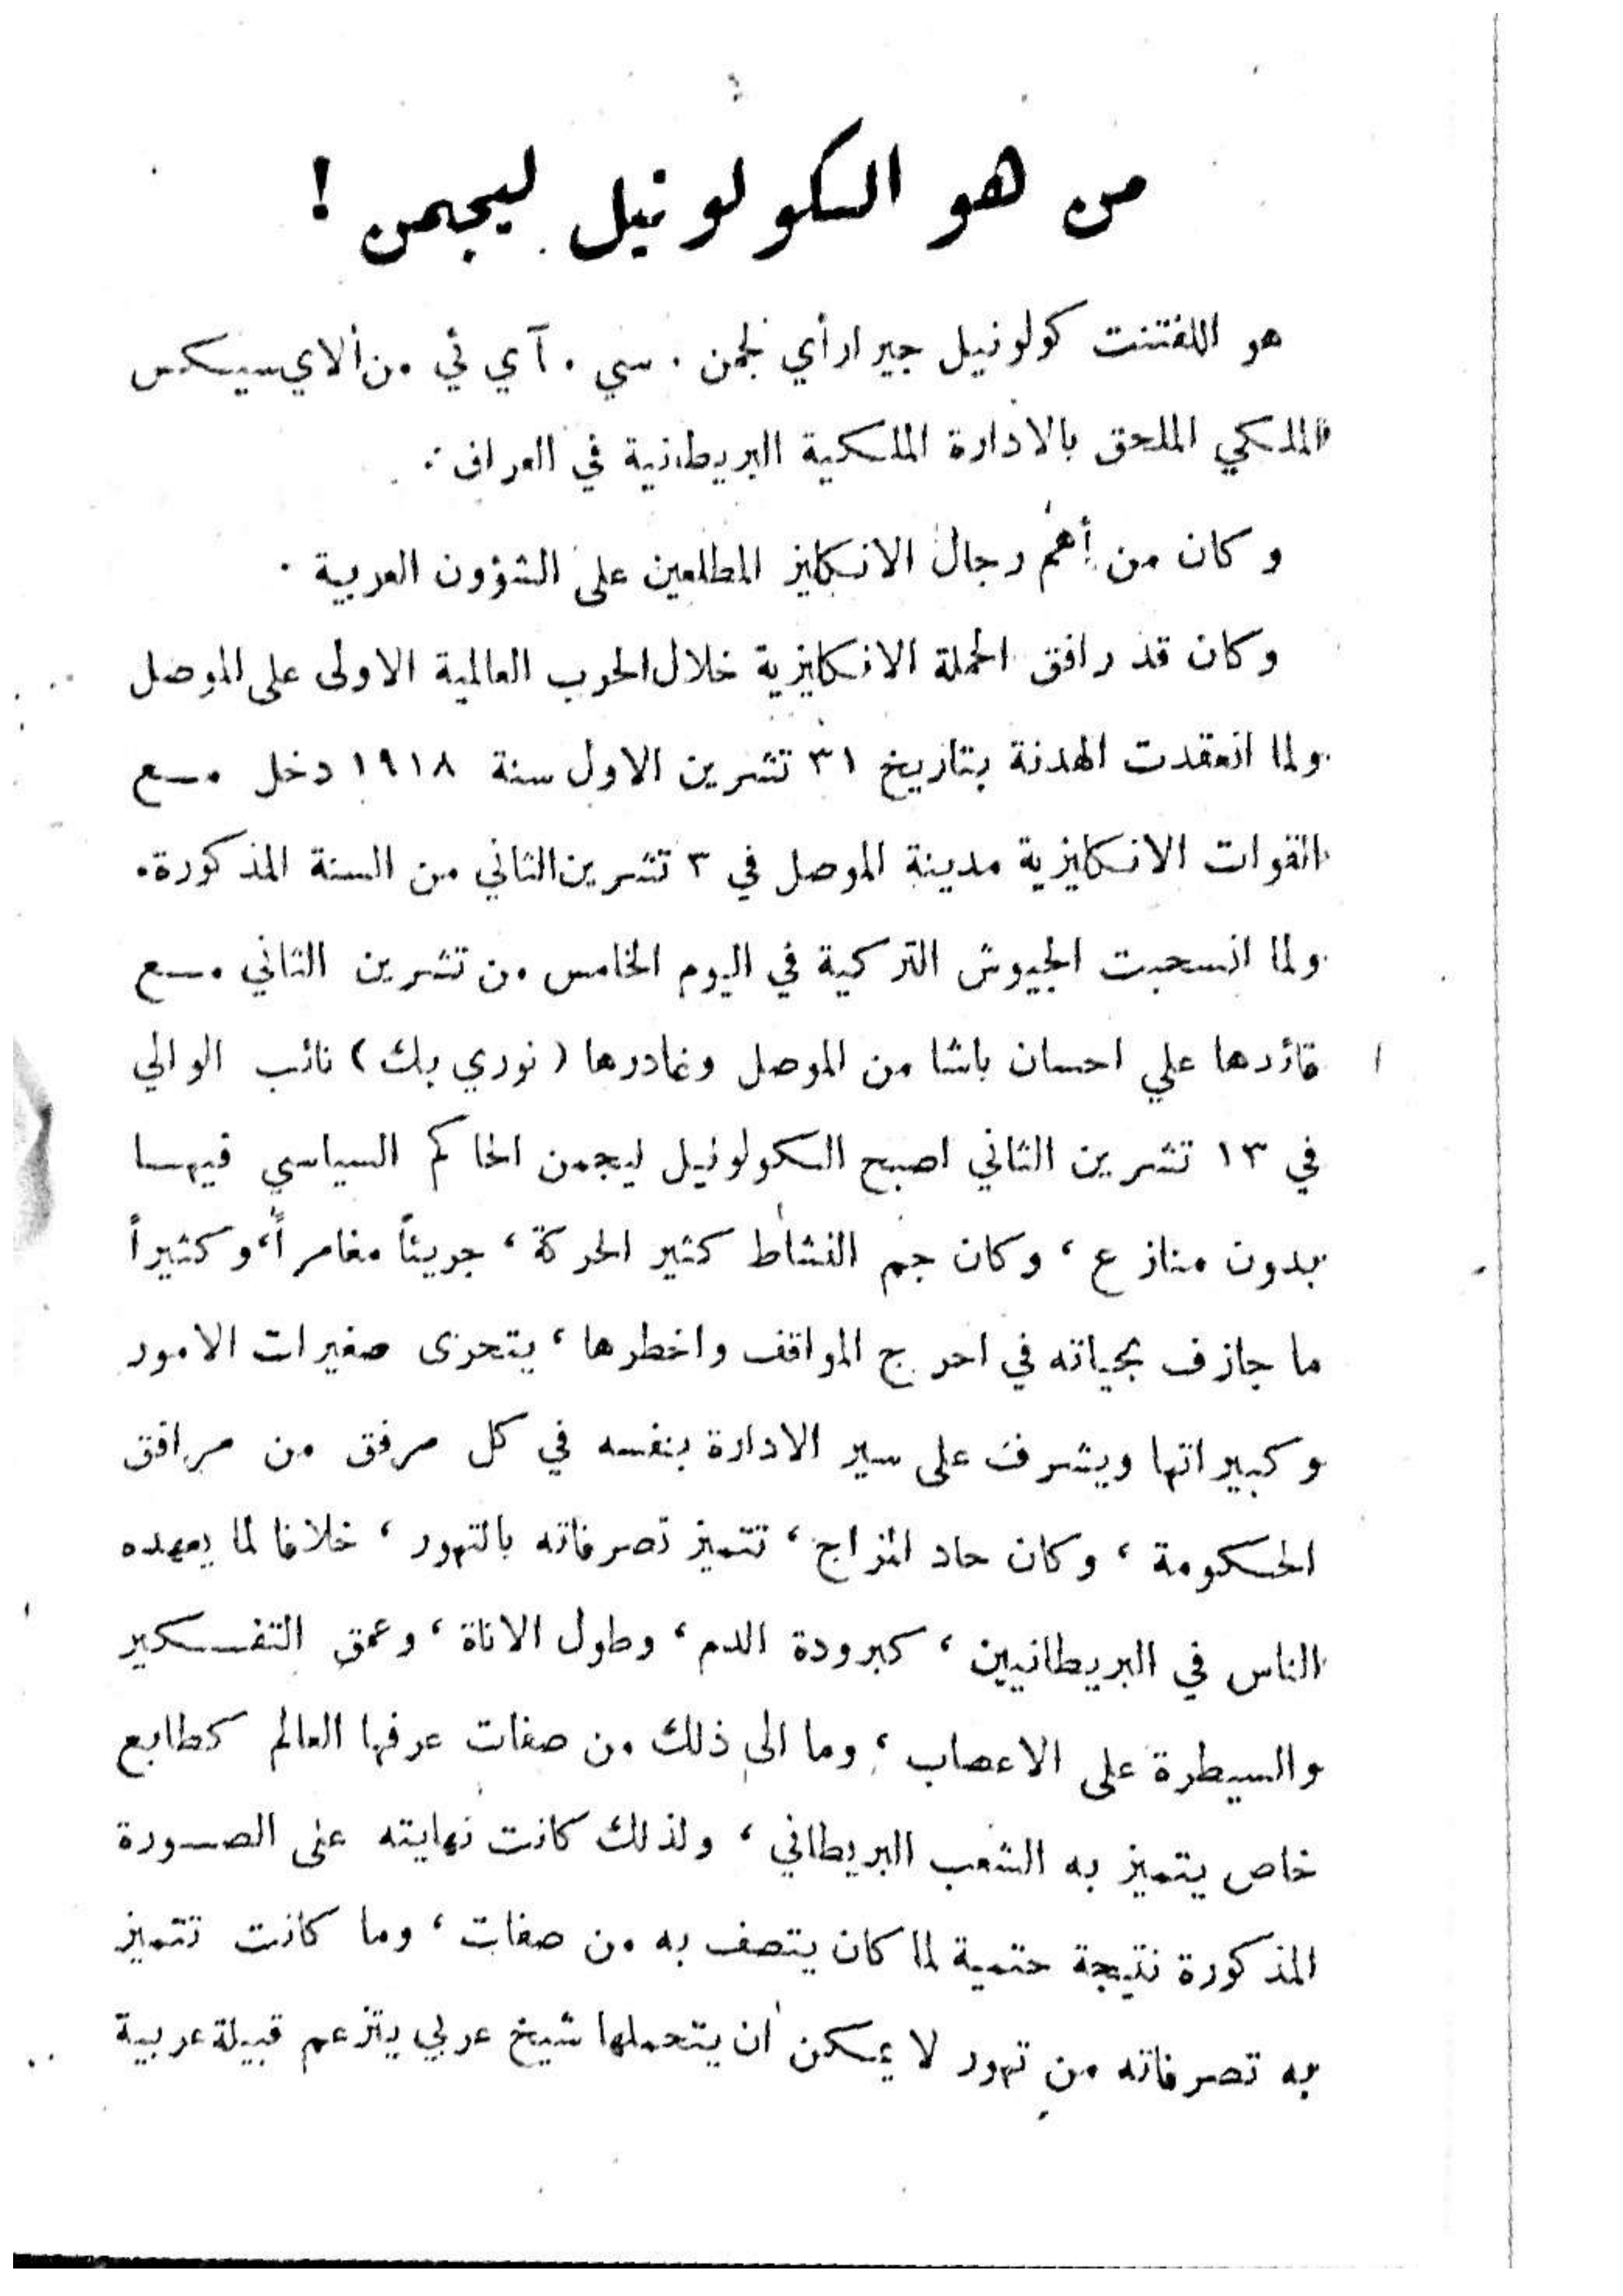 من هو الكولونيل ليجمن !
هو اللفتنت كولونيل جيرار أي لجمن . سي . آي ئي من ألاي سيكس
الملكي الملحق بالادارة الملكية البريطانية في العراق .
وكان من أهم رجال الانكليز المطلعين على الشؤون العربية .
وكان قد رافق الحملة الانكليزية خلال الحرب العالمية الاولى على الموصل
ولما انعقدت الهدنة بتاريخ ٣١ تشرين الاول سنة ١٩١٨ دخل مع
القوات الانكليزية مدينة الموصل في ٣ تشرين الثاني من السنة المذكورة.
ولما انسحبت الجيوش التركية في اليوم الخامس من تشرين الثاني مع
قائدها علي احسان باشا من الموصل وغادرها ( نوري بك ) نائب الوالي
في ١٣ تشرين الثاني اصبح الكولونيل ليجمن الحاكم السياسي فيها
بدون منازع ، وكان جم النشاط كثير الحركة ، جريئاً مغامراً ، وكثيراً
ما جازف بحياته في احرج المواقف واخطرها ، يتحرى صغيرات الامور
وكبيراتها ويشرف على سير الادارة بنفسه في كل مرفق من مرافق
الحكومة ، وكان حاد المزاج ، تتميز تصرفاته بالتهور ، خلافا لما يعهده
الناس في البريطانيين ، كبرودة الدم ، وطول الاناة ، وعمق التفكير
والسيطرة على الاعصاب ، وما الى ذلك من صفات عرفها العالم كطابع
خاص يتميز به الشعب البريطاني ، ولذلك كانت نهايته على الصورة
المذكورة نتيجة حتمية لما كان يتصف به من صفات ، وما كانت تتميز
به تصرفاته من تهور لا يمكن ان يتحملها شيخ عربي يتزعم قبيلة عربية